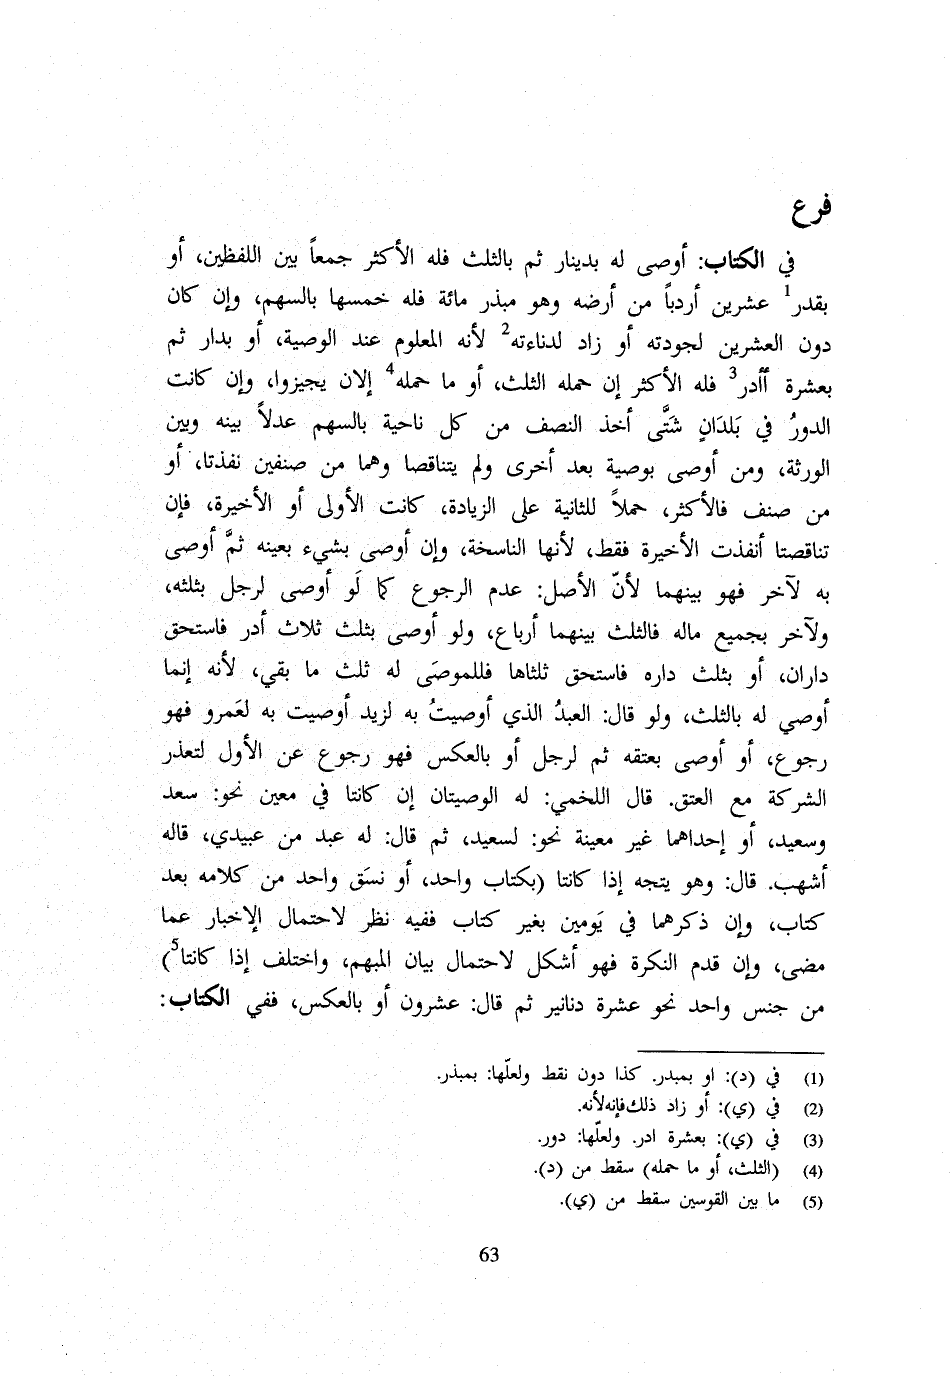 فرع
في الكتاب: أوصى له بدينار ثم بالثلث فله الأكثر جمعاً بين اللفظين، أو
بقدر1 عشرين أردباً من أرضه وهو مبذر مائة فله خمسها بالسهم، وإن كان
دون العشرين لجودته أو زاد لدناءته2 لأنه المعلوم عند الوصية، أو بدار ثم
بعشرة أأدر3 فله الأكثر إن حمله الثلث، أو ما حمله4 إلان يجيزوا، وإن كانت
الدورُ في بَلدَانٍ شَتَّى أخذ النصف من كل ناحية بالسهم عدلاً بينه وبين
الورثة، ومن أوصى بوصية بعد أخرى ولم يتناقصا وهما من صنفين نفذتا، أو
من صنف فالأكثر، حملاً للثانية على الزيادة، كانت الأولى أو الأخيرة، فإن
تناقصتا أنفذت الأخيرة فقط، لأنها الناسخة، وإن أوصى بشيء بعينه ثمَّ أوصى
به لآخر فهو بينهما لأنّ الأصل: عدم الرجوع كما لَو أوصى لرجل بثلثه،
ولآخر بجميع ماله فالثلث بينهما أرباع، ولو أوصى بثلث ثلاث أدر فاستحق
داران، أو بثلث داره فاستحق ثلثاها فللموصَى له ثلث ما بقي، لأنه إنما
أوصي له بالثلث، ولو قال: العبدُ الذي أوصيتُ به لزيد أوصيت به لعَمرو فهو
رجوع، أو أوصى بعتقه ثم لرجل أو بالعكس فهو رجوع عن الأول لتعذر
الشركة مع العتق. قال اللخمي: له الوصيتان إن كانتا في معين نحو: سعد
وسعيد، أو إحداهما غير معينة نحو: لسعيد، ثم قال: له عبد من عبيدي، قاله
أشهب. قال: وهو يتجه إذا كانتا (بكتاب واحد، أو نسَق واحد من كلامه بعد
كتاب، وإن ذكرهما في يَومين بغير كتاب ففيه نظر لاحتمال الإخبار عما
مضى، وإن قدم النكرة فهو أشكل لاحتمال بيان المبهم، واختلف إذا كانتا5)
من جنس واحد نحو عشرة دنانير ثم قال: عشرون أو بالعكس، ففي الكتاب:
(1) في (د): او بمبدر. كذا دون نقط ولعلّها: بمبذر.
(2) في (ي): أو زاد ذلك فإنه لأنه.
(3) في (ي): بعشرة ادر. ولعلّها: دور.
(4) (الثلث، أو ما حمله) سقط من (د).
(5) ما بين القوسين سقط من (ي).
63